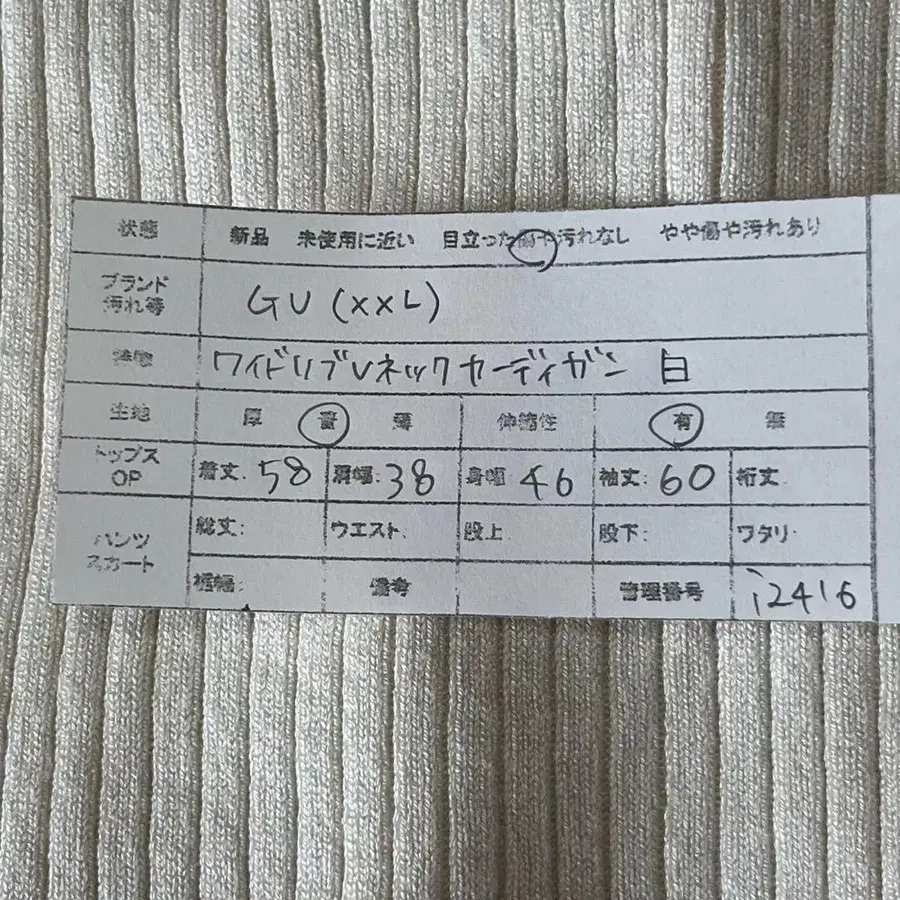 状態 新品 未使用に近い 目立った傷や汚れなし やや傷や汚れあり
ブランド
汚れ等 GU (XXL)
ワイドリブVネックカーディガン 白
生地 厚 普 薄 伸縮性 有 無
トップス
OP 着丈: 58 肩幅: 38 身幅: 46 袖丈: 60 裄丈:
パンツ
スカート 総丈: ウエスト: 股上: 股下: ワタリ:
裾幅: 備考 管理番号 i2416